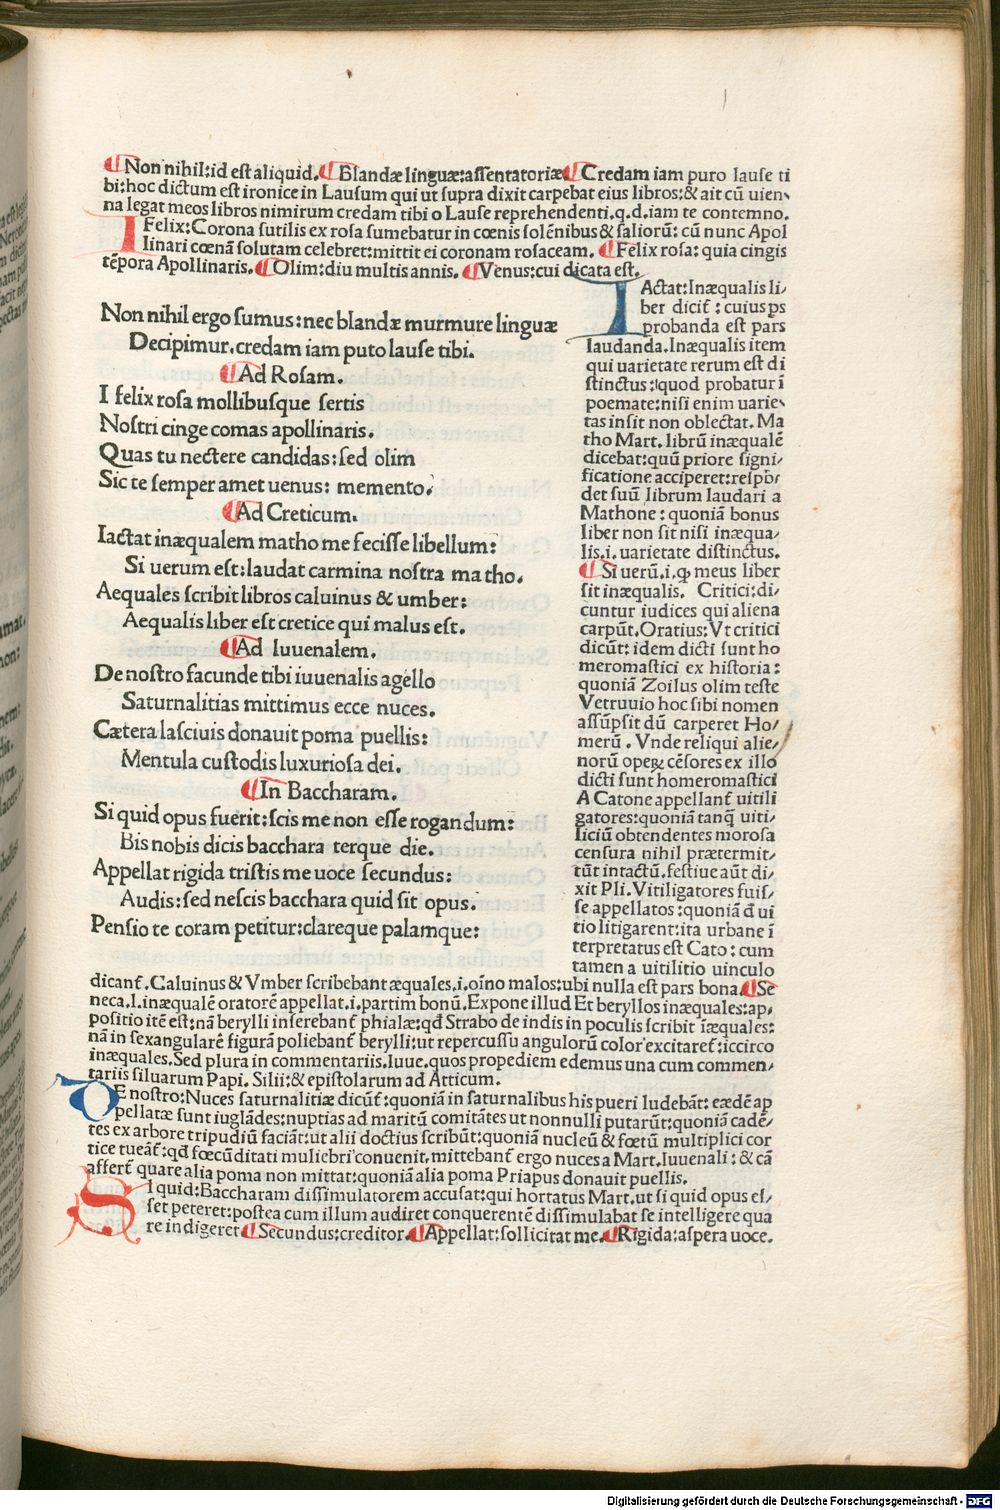 ¶Non nihil:id est aliquid.¶Blandæ linguæ:assentatoriæ¶Credam iam puro lause ti
bi:hoc dictum est ironice in Lausum qui ut supra dixit carpebat eius libros:& ait cū uien-
na legat meos libros nimirum credam tibi o Lause reprehendenti.q.d.iam te contemno.
I Felix:Corona sutilis ex rosa sumebatur in cœnis solēnibus & saliorū: cū nunc Apol
linari cœnā solutam celebret:mittit ei coronam rosaceam. ¶Felix rosa: quia cingis
tēpora Apollinaris.¶Olim:diu multis annis. ¶Venus:cui dicata est.
Non nihil ergo sumus:nec blandæ murmure linguæ
Decipimur.credam iam puto lause tibi.
¶Ad Rosam.
I felix rosa mollibusque sertis
Nostri cinge comas apollinaris.
Quas tu nectere candidas:sed olim
Sic te semper amet uenus: memento.
¶Ad Creticum.
Iactat inæqualem matho me fecisse libellum:
Si uerum est:laudat carmina nostra matho.
Aequales scribit libros caluinus & umber:
Aequalis liber est cretice qui malus est.
¶Ad Iuuenalem.
De nostro facunde tibi iuuenalis agello
Saturnalitias mittimus ecce nuces.
Cætera lasciuis donauit poma puellis:
Mentula custodis luxuriosa dei.
¶In Baccharam.
Si quid opus fuerit:scis me non esse rogandum:
Bis nobis dicis bacchara terque die.
Appellat rigida tristis me uoce secundus:
Audis:sed nescis bacchara quid sit opus.
Pensio te coram petitur:clareque palamque:
IActat:Inæqualis li/
ber dicit̄ : cuius ps
probanda est pars
laudanda.Inæqualis item
qui uarietate rerum est di
stinctus:Iquod probatur ī
poemate:nisi enim uarie-
tas insit non oblectat. Ma
tho Mart. librū inæqualē
dicebat:quū priore signi/
ficatione acciperet:respōn
det suū librum laudari a
Mathone : quoniā bonus
liber non sit nisi inæqua/
lis.i.uarietate distinctus.
¶Si uerū.i.ꝙ meus liber
sit inæqualis. Critici:di/
cuntur iudices qui aliena
carpūt.Oratius:Vt critici
dicūt: idem dicti sunt ho
meromastici ex historia:
quoniā Zoilus olim teste
Vetruuio hoc sibi nomen
assūpsit dū carperet Ho/
merū . Vnde reliqui alie/
norū opeꝝ cēsores ex illo
dicti sunt homeromastici
A Catone appellant̄ uitili
gatores:quoniā tanq̄ uiti/
liciū obtendentes morosa
censura nihil prætermit/
tūt intactū.festiue aūt di/
xit Pli.Vitiligatores fuis/
se appellatos :quoniā d̄ ui
tio litigarent:ita urbane ī
terpretatus est Cato: cum
tamen a uitilitio uinculo
dicant̄.Caluinus & Vmber scribebant æquales.i.oīno malos:ubi nulla est pars bona.¶Se
neca.I.inæqualē oratorē appellat.i.partim bonū.Expone illud Et beryllos inæquales:ap/
positio itē est:nā berylli inserebant̄ phialæ:qđ Strabo de indis in poculis scribit īæquales:
nā in sexangularē figurā poliebant̄ berylli:ut repercussu angulorū color excitaret̄:iccirco
inæquales.Sed plura in commentariis.Iuue.quos propediem edemus una cum commen/
tariis siluarum Papi. Silii:& epistolarum ad Atticum.
DE nostro:Nuces saturnalitiæ dicūt̄:quoniā in saturnalibus his pueri ludebāt: eædē ap
pellatæ sunt iuglādes:nuptias ad maritū comitātes ut nonnulli putarūt:quoniā cadē/
tes ex arbore tripudiū faciāt:ut alii doctius scribūt:quoniā nucleū & fœtū multiplici cor
tice tueāt̄:qđ fœcūditati muliebri conuenit.mittebant̄ ergo nuces a Mart.Iuuenali : & cā
affert̄ quare alia poma non mittat:quoniā alia poma Priapus donauit puellis.
SI quid:Baccharam dissimulatorem accusat:qui hortatus Mart.ut si quid opus es/
set peteret:postea cum illum audiret conquerentē dissimulabat se intelligere qua
re indigeret¶Secundus:creditor.¶Appellat:sollicitat me.¶Rigida:aspera uoce.
Digitalisierung gefördert durch die Deutsche Forschungsgemeinschaft - DFG